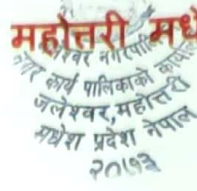 महोत्तरी मधे
जलेश्वर नगरपालि
नगर कार्य पालिकाको कार्याल
जलेश्वर, महोत्तरी
मधेश प्रदेश नेपाल
२०७३